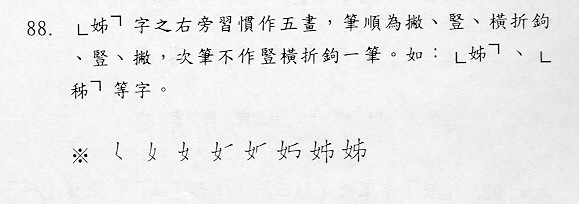 88. ﹂姊﹁字之右旁習慣作五畫,筆順為撇、豎、橫折鉤
、豎、撇,次筆不作豎橫折鉤一筆。如:﹂姊﹁、﹂
秭﹁等字。
※ 姊